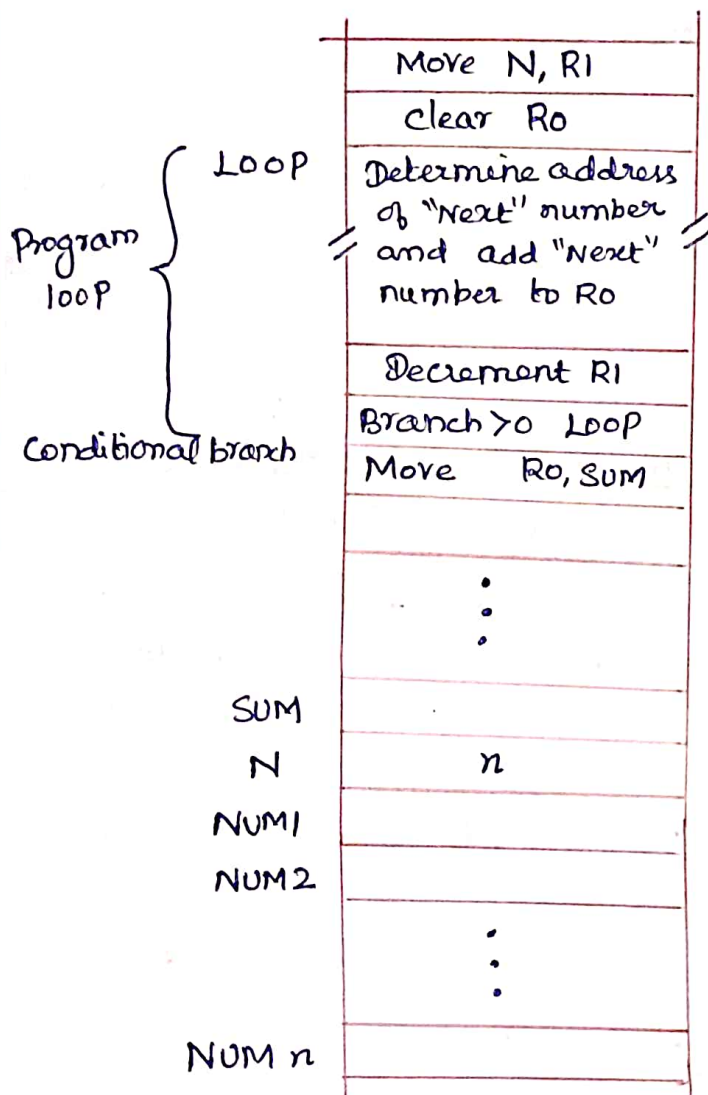 Move N, R1
Clear R0
LOOP
Determine address
of "Next" number
and add "Next"
number to R0
Program
loop
Decrement R1
Branch>0 LOOP
Conditional branch
Move R0, SUM
SUM
N n
NUM1
NUM2
NUM n